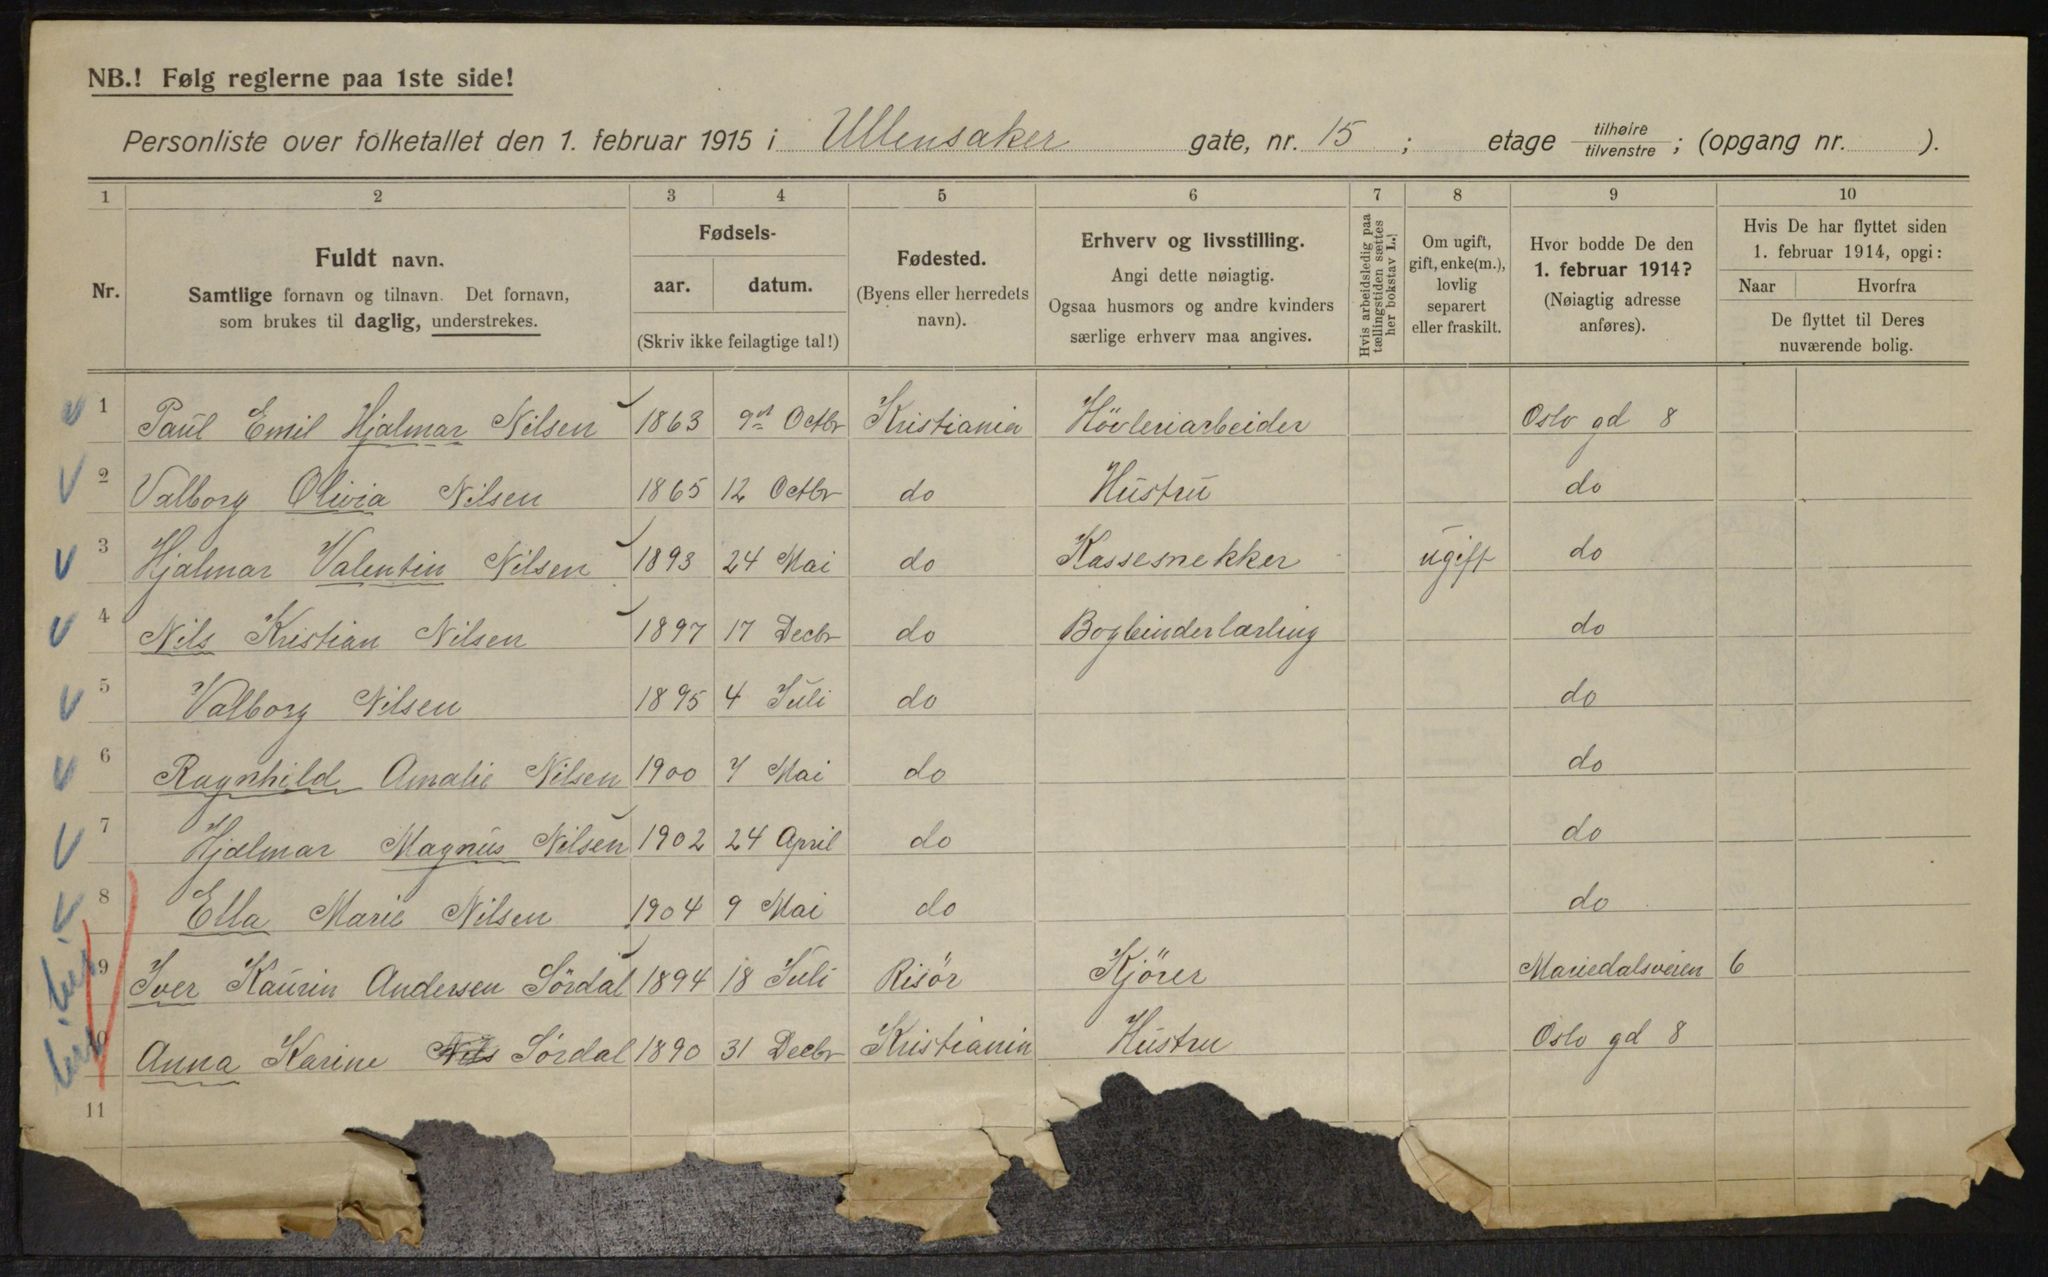 NB.! Følg reglerne paa 1ste side!
Personliste over folketallet den 1. februar 1915 i Ullensaker gate, nr. 15 ; etage tilhøire tilvenstre ; (opgang nr. ).
1 2 3 4 5 6 7 8 9 10
Nr.
Fuldt navn.
Samtlige fornavn og tilnavn. Det fornavn,
som brukes til daglig, understrekes.
Fødsels-
aar. datum.
(Skriv ikke feilagtige tal!)
Fødested.
(Byens eller herredets
navn).
Erhverv og livsstilling.
Angi dette nøiagtig.
Ogsaa husmors og andre kvinders
særlige erhverv maa angives.
Hvis arbeidsledig paa
tællingstiden sættes
her bokstav L.!
Om ugift,
gift, enke(m.),
lovlig
separert
eller fraskilt.
Hvor bodde De den
1. februar 1914?
(Nøiagtig adresse
anføres).
Hvis De har flyttet siden
1. februar 1914, opgi:
Naar Hvorfra
De flyttet til Deres
nuværende bolig.
1 Paul Emil Hjalmar Nilsen 1863 9 Octbr Kristiania Høvleriarbeider Oslo gd 8
2 Valborg Olivia Nilsen 1865 12 Octbr do Hustru do
3 Hjalmar Valentin Nilsen 1893 24 Mai do Kassesnekker ugift do
4 Nils Kristian Nilsen 1897 17 Decbr do Bogbinderlærling do
5 Valborg Nilsen 1895 4 Juli do do
6 Ragnhild Amalie Nilsen 1900 7 Mai do do
7 Hjalmar Magnus Nilsen 1902 24 April do do
8 Ella Marie Nilsen 1904 9 Mai do do
9 Iver Kaurin Andersen Sördal 1894 18 Juli Risör Kjörer Mariedalsveien 6
10 Anna Karine Sördal 1890 31 Decbr Kristiania Hustru Oslo gd 8
11